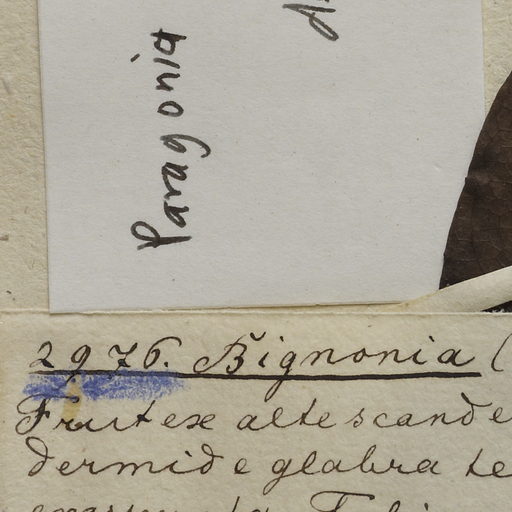 Paragonia
2976. Bignonia (
Frutex alte scande
dermide glabra te